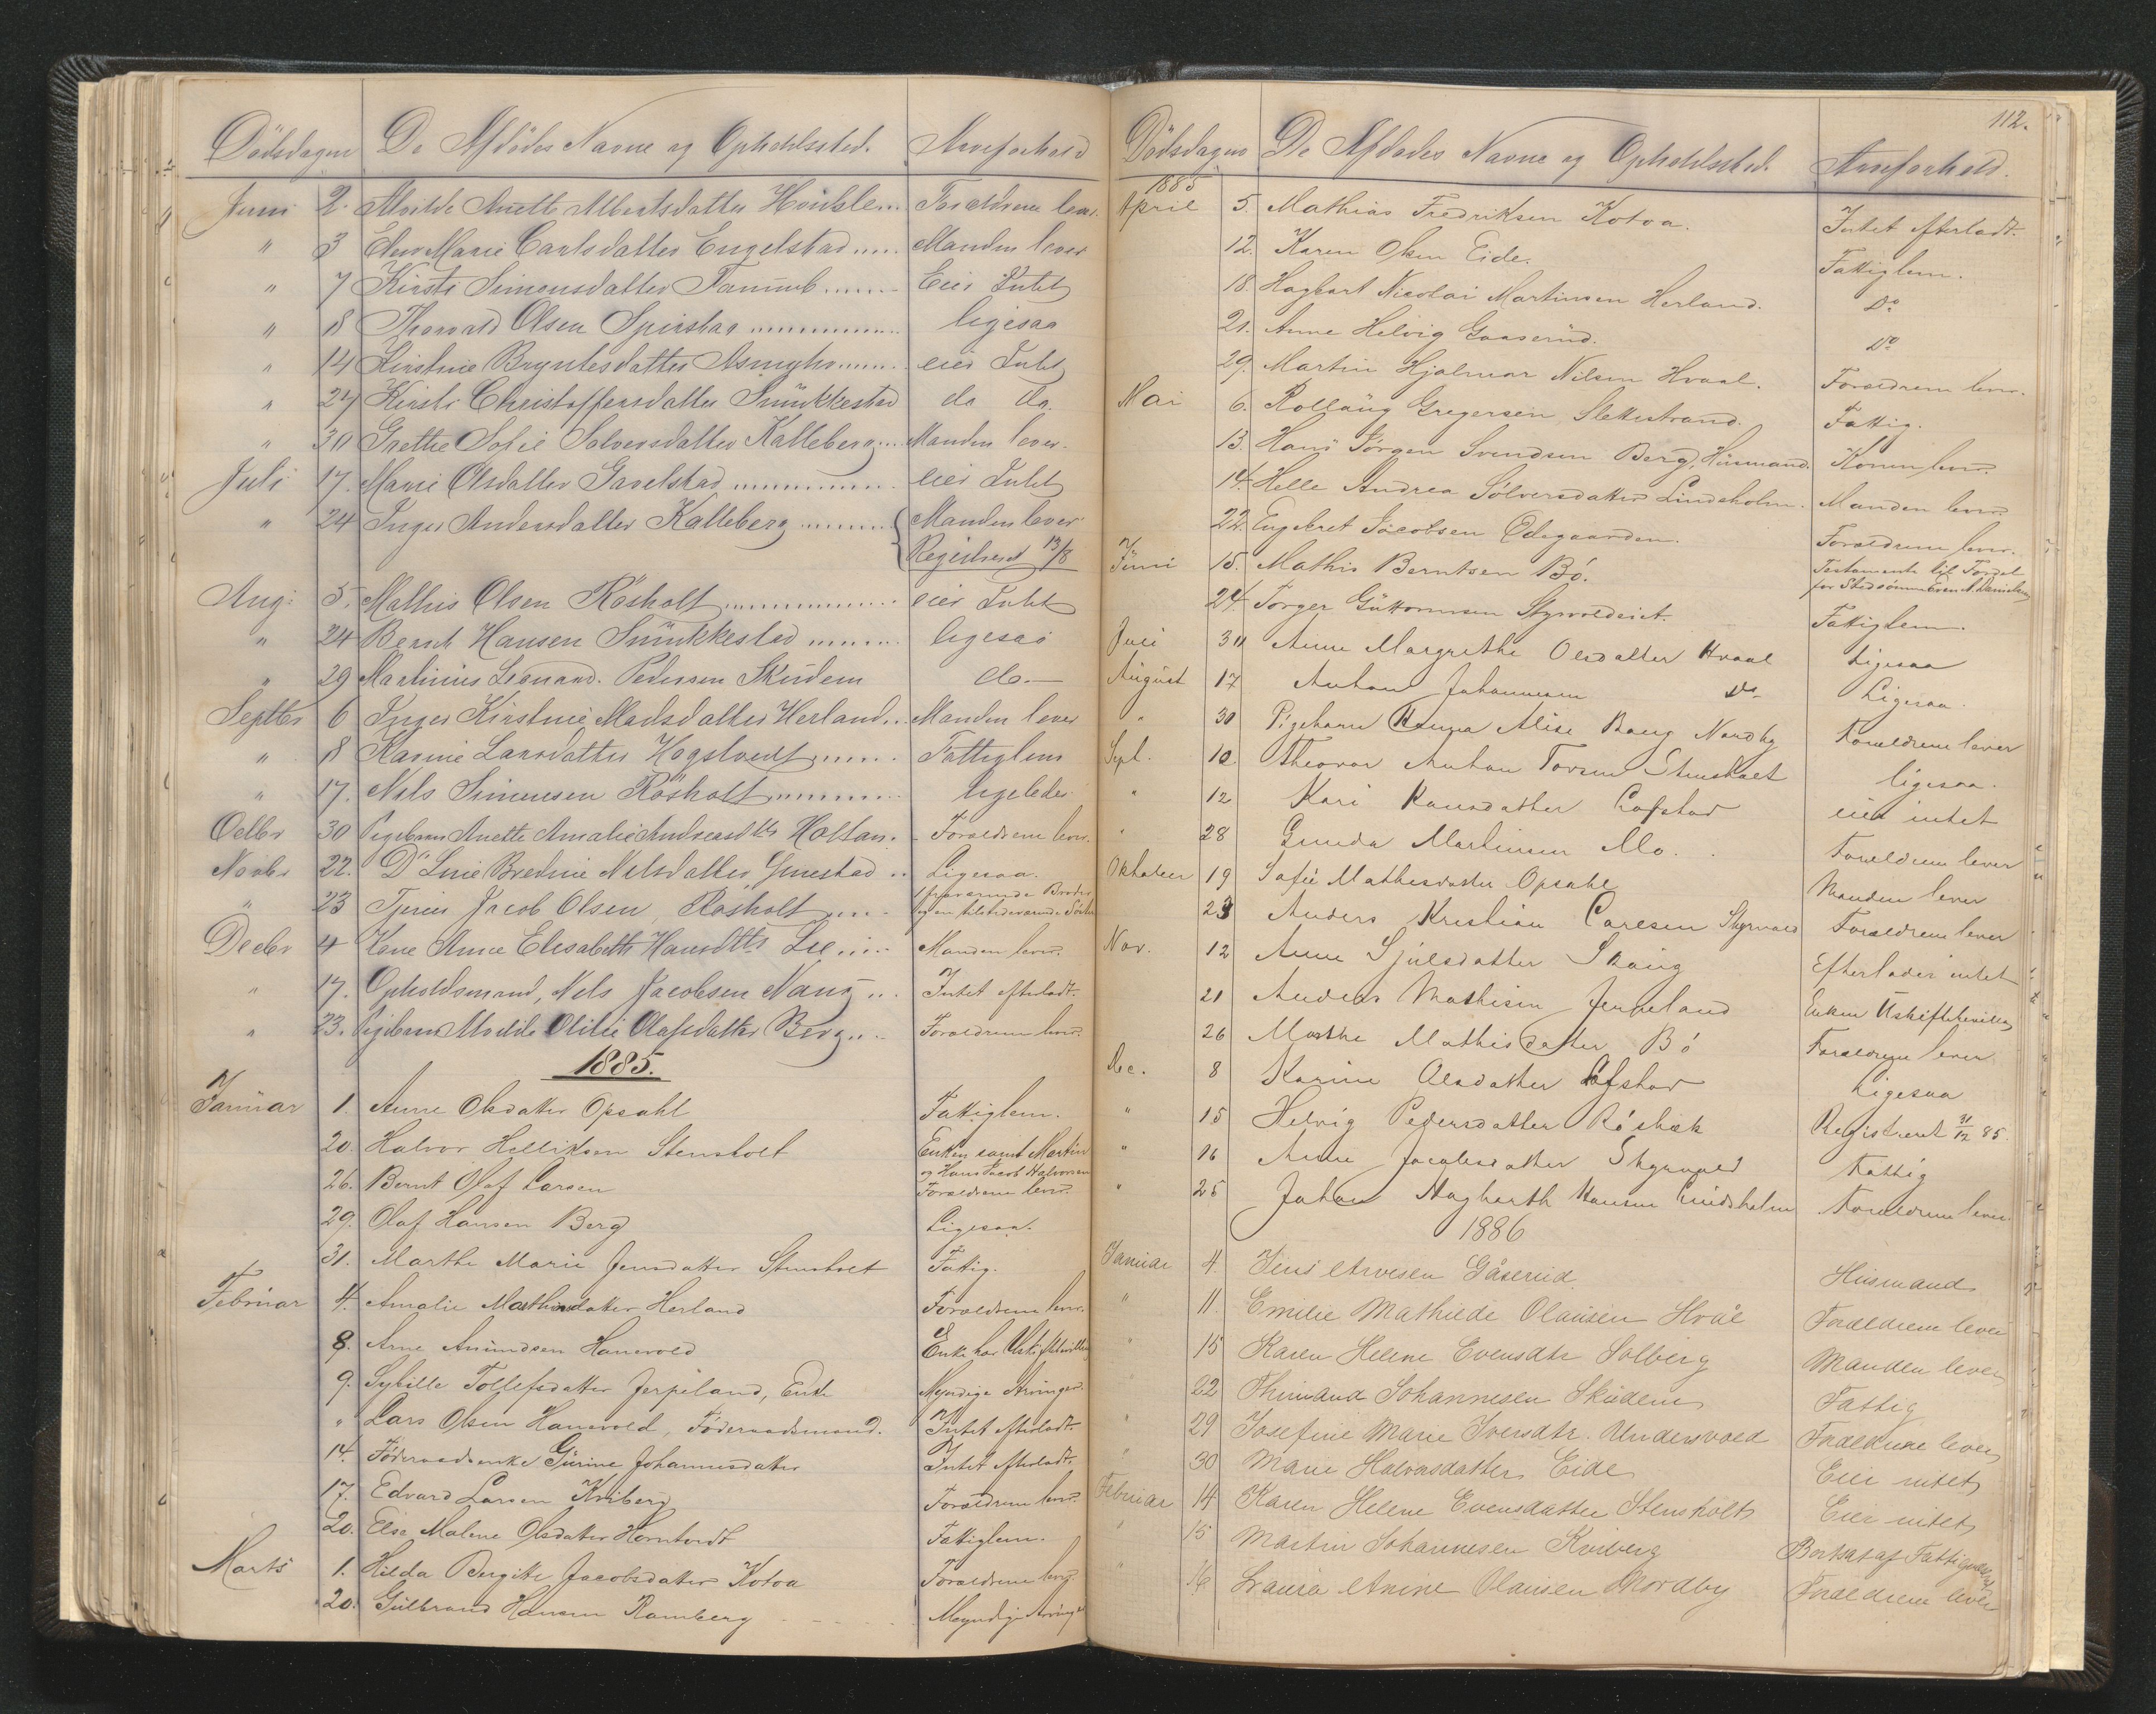 Dödsdagen De Afdödes Navne og Opholdssted. Arveforhold
Juni 2. Moilde Anette Albertsdatter Höidalen... Forældrene lever.
" 3 Elen Marie Carlsdatter Engelstad..... Manden lever
" 7 Kirsti Simensdatter Tamumb....... Eier Intet
" 8 Thorvald Olsen Spirstag ............... ligesaa
" 14 Kirstine Bryntesdatter Asmyhr......... eier Intet
" 24 Kirsti Christoffersdatter Smükkestad do do.
" 30 Grethe Sofie Solversdatter Kalleberg.... Manden lever.
Juli 17. Marie Olsdatter Gavelstad ............... eier Intet
" 24 Inger Andersdatter Kalleberg ......... Manden lever
Registreret 13/8
Aug: 5. Mathis Olsen Rösholt................ eier Intet
" 24 Bernt Hansen Smükkestad ......... ligesaa
" 29 Martinius Leonard. Pedersen Skudem do.—
Septber 6 Inger Kirstine Madsdatter Herland... Manden lever
" 8 Karine Larsdatter Hogstvedt....... Fattiglem
" 17. Nils Simensen Rösholt............ ligeledes
Octbr 30 Pigebarn Anette Amalie Andreasdtr Holtan. Forældrene lever.
Novbr 22. Do Line Bredine Nilsdatter Gunestad .. Ligesaa.
" 23 Tjener Jacob Olsen, Rösholt.... fraværende Broder
og en tilstedeværende Söster
Decbr 4 Kone Anne Elisabeth Hansdtr Lie..... Manden lever.
" 17. Opholdsmand, Nils Jacobsen Naug .. Intet efterladt.
" 23. Pigebarn Matilde Otilie Olafsdatter Berg... Forældrene lever.
1885.
Januar 1. Anne Olsdatter Opsahl Fattiglem.
20. Halvor Helliksen Stensholt Enken samt Martin
og Hans Jacob Halvorsen
26. Bernt Olaf Larsen Forældrene lever.
29. Olaf Hansen Berg Ligesaa.
31. Marthe Marie Jensdatter Stensholt Fattig.
Februar 4. Amalie Mathisdatter Herland Forældrene lever.
8. Arne Amundsen Hanevold Enke har Uskiftebevilling
9. Sybille Tollefsdatter Jerpeland, Enke Myndige Arvinger.
" Lars Olsen Hanevold, Föderaadsmand. Intet efterladt.
14. Föderaadsenke Gurine Johannesdatter Intet efterladt.
17. Edvard Larsen Kviberg Forældrene lever.
20. Else Malene Olsdatter Horntvedt Fattiglem.
Marts 1. Hilda Bergitte Jacobsdatter Kotoa Forældrene lever.
20. Gulbrand Hansen Ramberg Myndige Arvinger
112.
Dödsdagen De Afdödes Navne og Opholdssted. Arveforhold.
1885
April 5. Mathias Fredriksen Kotoa. Intet efterladt.
12. Karen Olsen Eide. Fattiglem.
18. Hagbart Nicolai Martinsen Herland. Do
21. Anne Helvig Gaaserud. Do
29. Martin Hjalmar Nilsen Hvaal. Forældrene lever.
Mai 6. Rollaug Gregersen Slettestrand. Fattig.
13. Hans Jörgen Svendsen Berg, Husmand. Konen lever.
14. Helle Andrea Sölversdatter Lindsholm. Manden lever.
22. Engebret Jacobsen Ödegaarden. Forældrene lever.
Juni 15. Mathis Berntsen Bö. Testamente til Fordel
for Stedsönnen Even A. Danielsen
24. Torger Guttormsen Styrvoldeiet. Fattiglem.
Juli 30 Anne Margrethe Olsdatter Hvaal Ligesaa
August 17 Anton Johannesen Do Ligesaa.
" 30 Pigebarn Hanna Alise Bang Nordby Forældrene lever
Sept. 10 Theovar Anton Torsen Stensholt ligesaa.
" 12 Kari Hansdatter Lofstad eier intet
" 28 Gunda Martinsen Mo. Forældrene lever
Oktober 19 Sofie Mathisdatter Opsahl Manden lever
23 Anders Kristian Carlsen Styrvold Forældrene lever
Nov. 12 Anne Sjulsdatter Skaug Efterlader intet
21 Anders Mathisen Jerpeland Enken Uskiftebevilling
26 Marthe Mathisdatter Bö Forældrene lever
Dec. 8 Karine Olsdatter Lofstad Ligesaa
" 15 Helvig Pedersdatter Röshok Registreret 31/12 85.
" 16 Anne Jacobsdatter Styrvold Fattig
" 25 Johan Hagbarth Hansen Lindsholm Forældrene lever.
1886
Januar 4. Jens Arvesen Gåserud Husmand
" 11. Emilie Mathilde Olausen Hvål Forældrene lever
" 15 Karen Helene Evensdtr Solberg Manden lever
" 22 Thimand Johannesen Skudem Fattig
" 29 Josefine Marie Iversdtr. Undersvold Forældrene lever
" 30 Marie Halvorsdatter Eide Eier intet
Februar 14 Karen Helene Evensdatter Stensholt Eier intet
" 15 Martin Johannesen Kviberg Bortsat af Fattigvæsenet
" 16 Laura Anine Olausen Nordby Forældrene lever